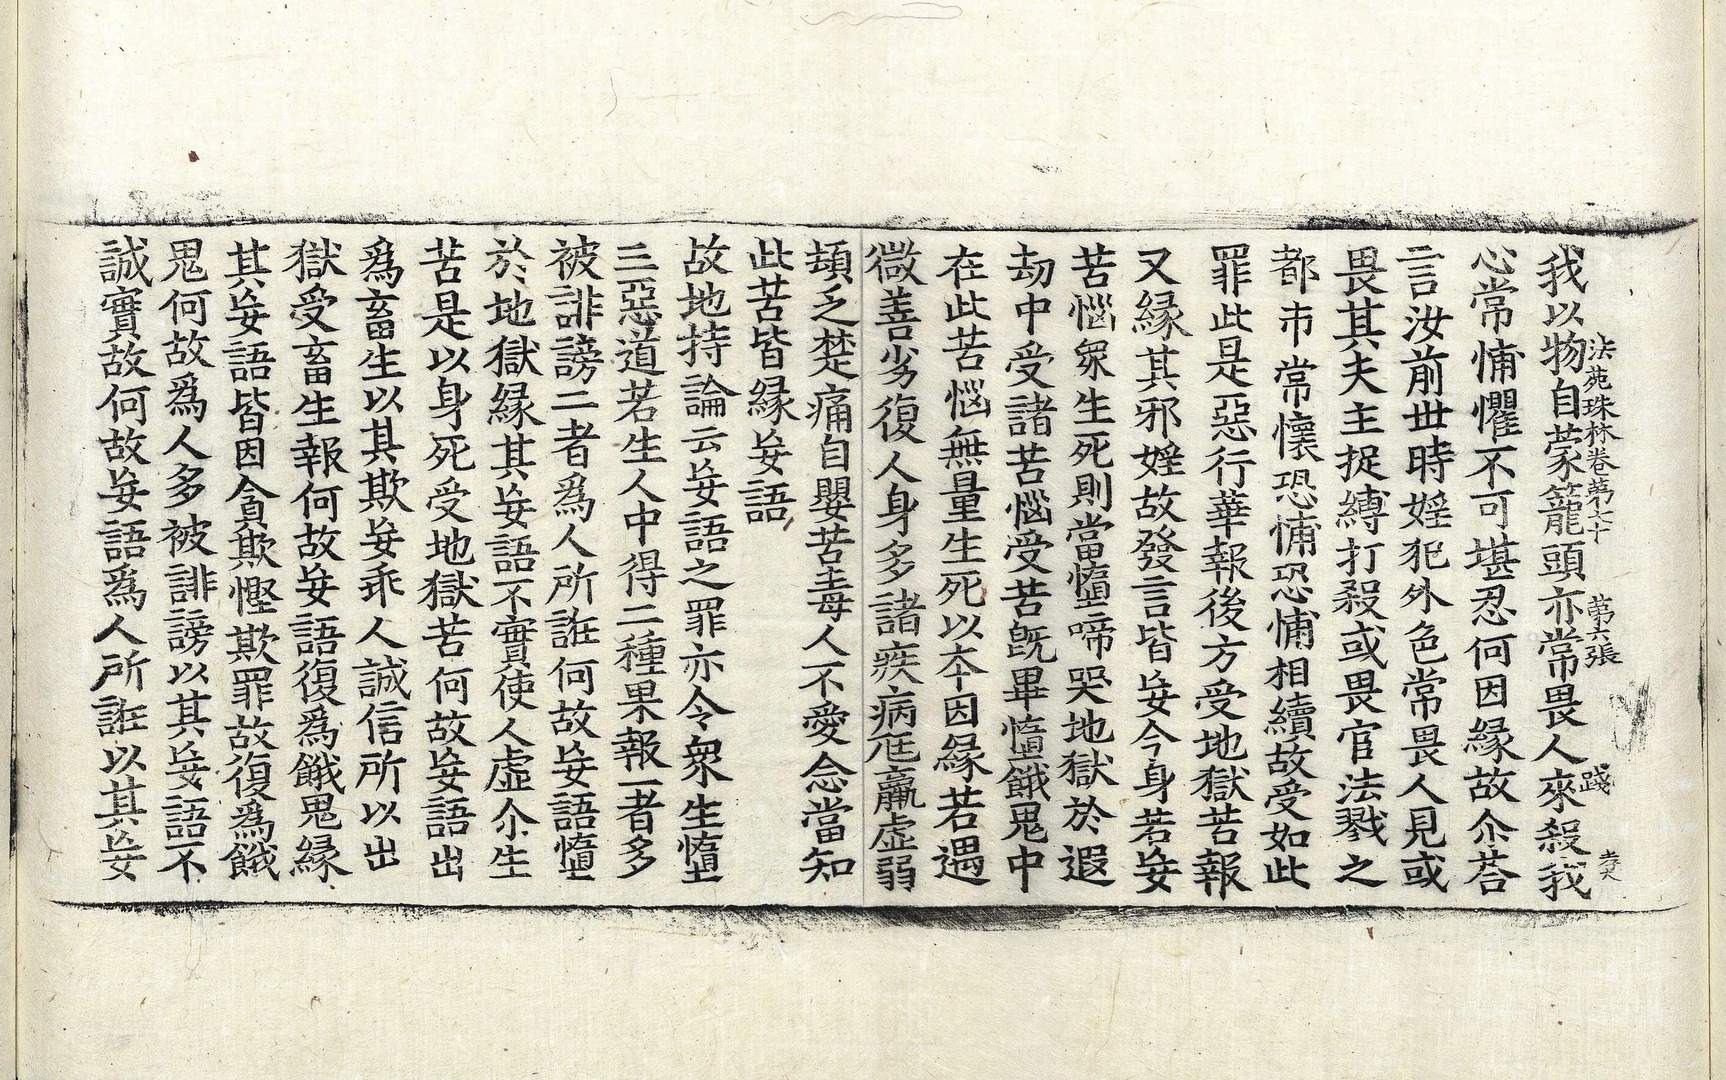 法苑珠林卷第七十 第六張 踐
我以物自蒙籠頭亦常畏人來殺我
心常怖懼不可堪忍何因緣故尒荅
言汝前世時婬犯外色常畏人見或
畏其夫主捉縛打殺或畏官法戮之
都市常懷恐怖恐怖相續故受如此
罪此是惡行華報後方受地獄苦報
又緣其邪婬故發言皆妄今身若妄
苦惱衆生死則當墮啼哭地獄於遐
劫中受諸苦惱受苦旣畢墮餓鬼中
在此苦惱無量生死以本因緣若遇
微善劣復人身多諸疾病尫羸虛弱
頓乏楚痛自嬰苦毒人不愛念當知
此苦皆緣妄語
故地持論云妄語之罪亦令衆生墮
三惡道若生人中得二種果報一者多
被誹謗二者爲人所誑何故妄語墮
於地獄緣其妄語不實使人虛尒生
苦是以身死受地獄苦何故妄語出
爲畜生以其欺妄乖人誠信所以出
獄受畜生報何故妄語復爲餓鬼緣
其妄語皆因貪欺慳欺罪故復爲餓
鬼何故爲人多被誹謗以其妄語不
誠實故何故妄語爲人所誑以其妄